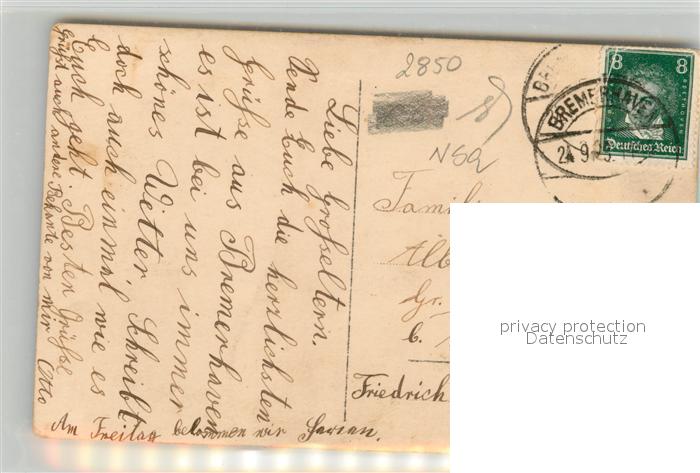 Liebe Großeltern.
Sende Euch die herzlichsten
Grüße aus Bremerhaven
es ist bei uns immer
schönes Wetter Schreibt
doch auch einmal wie es
Euch geht. Besten Grüße
Grüßt auch andere Bekante von mir Otto
Am Freitag bekommen wir Ferien.
2850
NSQ
BREMERHAVEN
24.9.
8 8
Deutsches Reich
Famili
Alb
Gr.
b.
Friedrich
privacy protection
Datenschutz